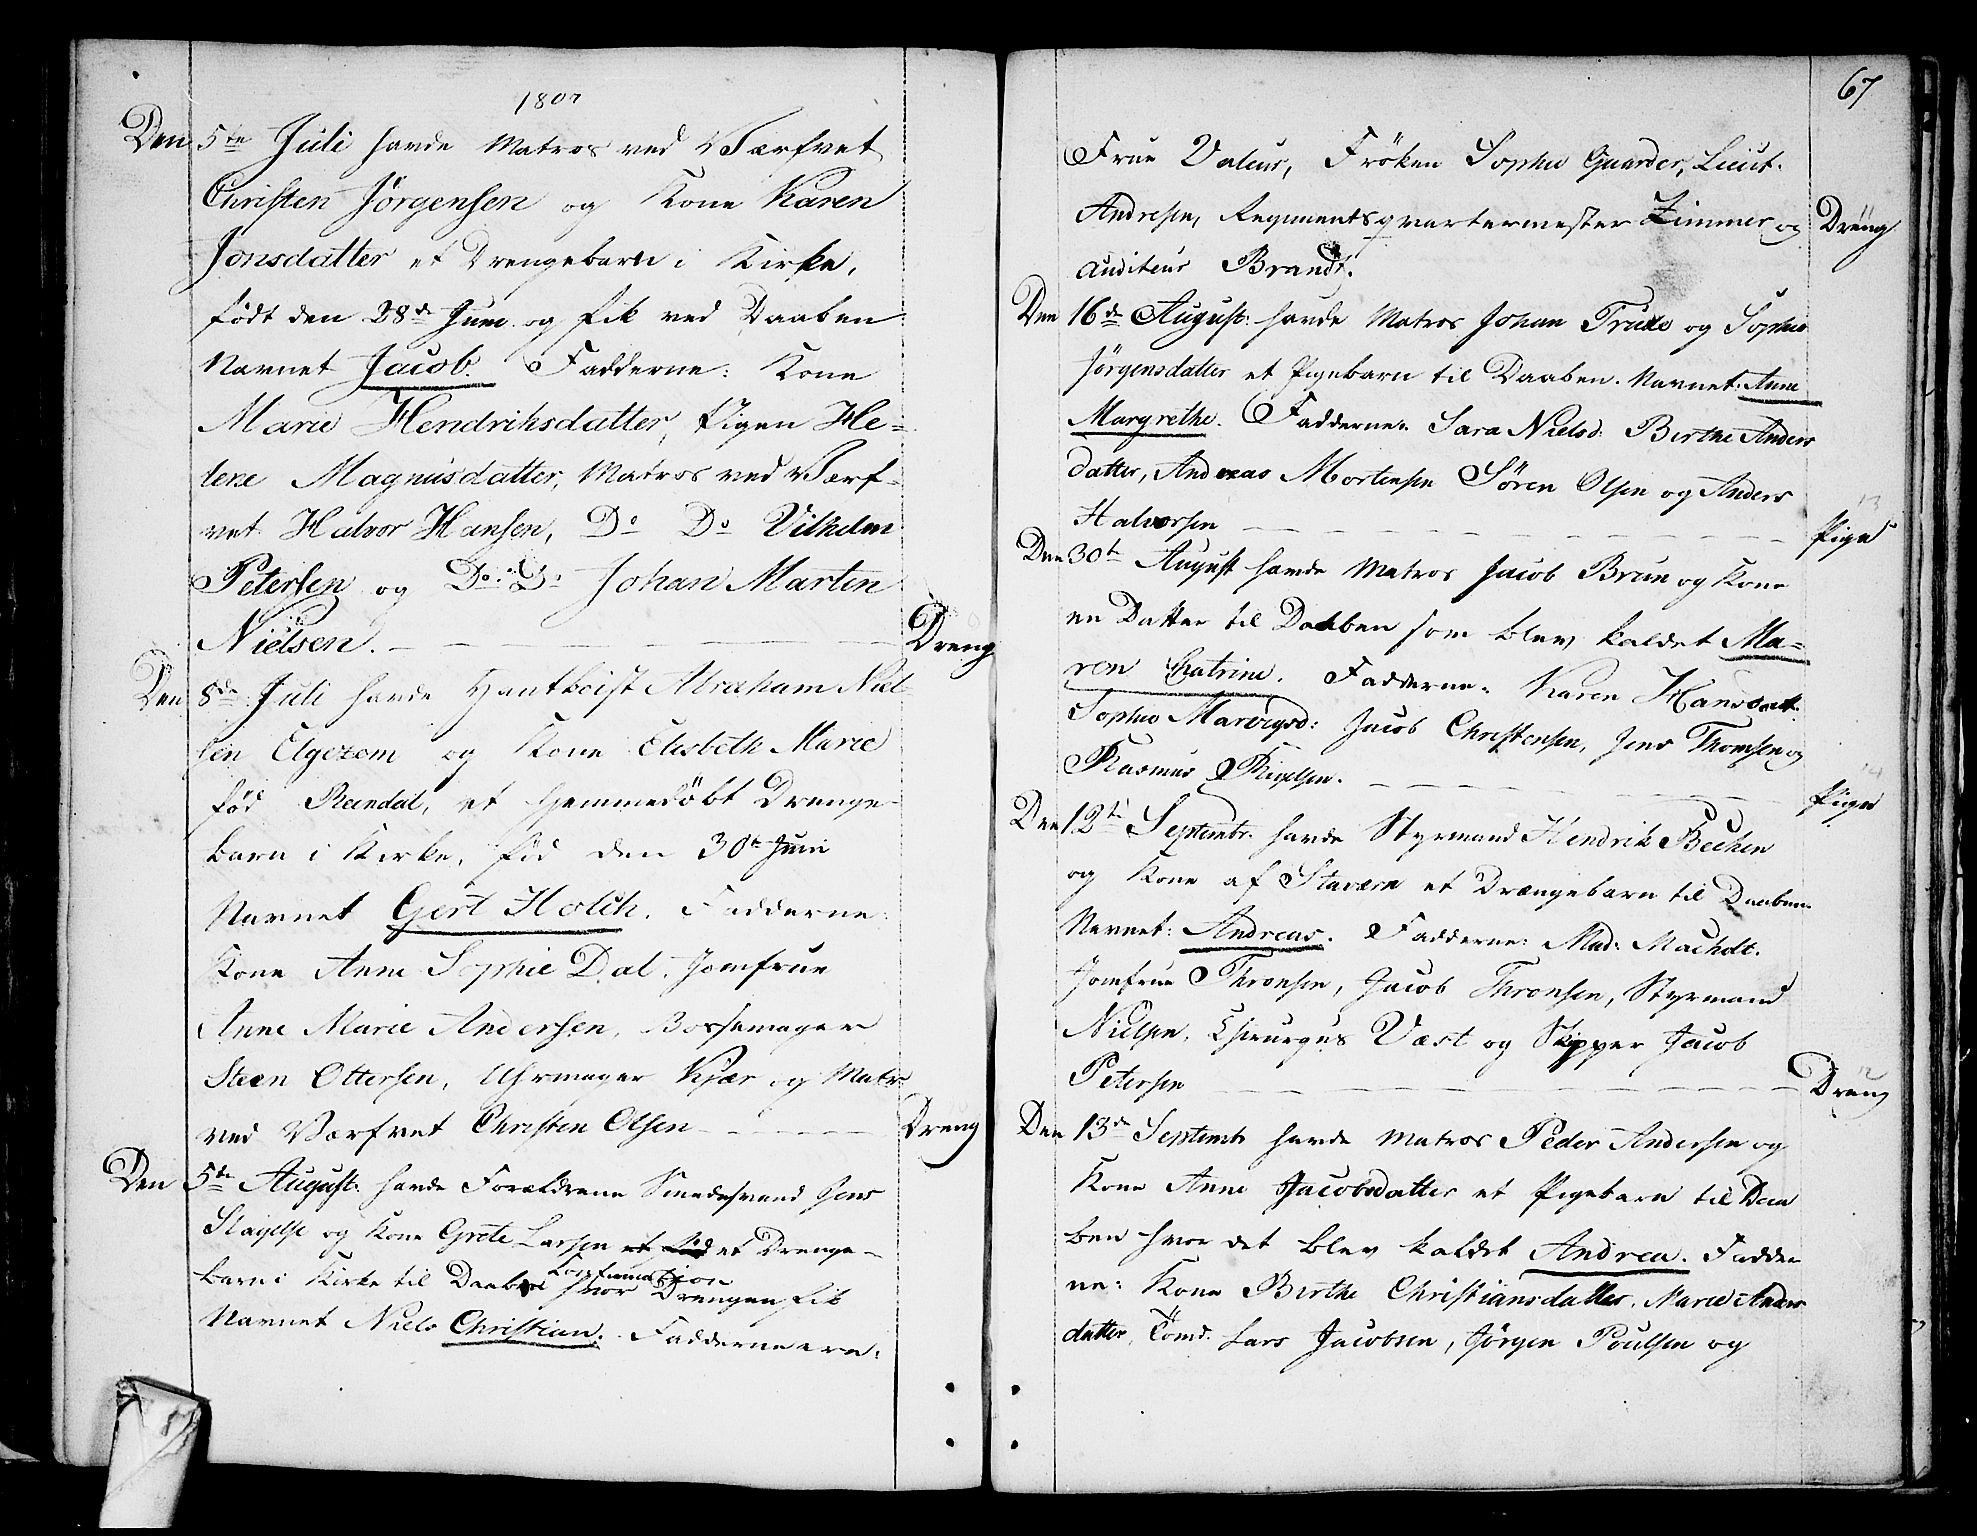 1807
Den 5te Juli havde Matros ved Værfvet
Christen Jörgensen og Kone Karen
Jonsdatter et Drengebarn i Kirke,
födt den 28de Juni og fik ved Daaben
Navnet Jacob. Fadderne: Kone
Marie Hendriksdatter, Pigen He=
lene Magnusdatter, Matros ved Værf-
vet Halvor Hansen, Do Do Vilhelm
Petersen og Do: Do Johan Martin
Nielsen. Dreng
Den 8de Juli havde Hautboist Abraham Niel
sen Elgezem og Kone Elisbeth Marie
föd Randal, et hjemmedöbt Drenge-
barn i Kirke, föd den 30te Juni
Navnet Gert Holch. Fadderne:
Kone Anne Sophie Dal, Jomfrue
Anne Marie Andersen, Bössemager
Steen Ottersen, Uhrmager Kjær og Matr:
ved Værfvet Christen Olsen Dreng
Den 5te August: havde Forældrene Smedesvend Jens
Slagelse og Kone Grete Larsen et Drenge-
barn i Kirke til
hvor Drengen fik
Navnet Niels Christian. Fadderne ere:
67
Frue Valeur, Fröken Sophie Guarder, Lieut.
Andresen, Regimentsqvartermester Zimmer og Dreng
Auditeur Brandt.
Den 16de August: havde Matros Johan Truxe og Sophie
Jörgensdatter et Pigebarn til Daaben. Navnet: Anne
Margrethe. Fadderne: Sara Nielsd: Birthe Anders
datter, Andreas Mortensen Sören Olsen og Anders
Halvorsen 13 Pige
Den 30te August havde Matros Jacob Brun og Kone
en Datter til Daaben som blev kaldet Ma=
ren Chatrine. Fadderne: Karen Hansdatt:
Sophie Jacob Christensen, Jens Thomsen og
Rasmus 14 Pige
Den 12te Septembr. havde Styrmand Hendrik Bechen
og Kone af Stavern et Drængebarn til Daaben
Navnet: Andreas. Fadderne: Mad: Machdt.
Jomfrue Thronsen, Jacob Thronsen, Styrmand
Nielsen, Chirurgus Væst og Skipper Jacob
Petersen 12 Dreng
Den 13de Septembr havde Matros Peder Andersen og
Kone Anne Jacobsdatter et Pigebarn til Daa
ben hvor det blev kaldet Andrea. Fadder
ne: Kone Birthe Christiansdatter, Marie Anders
datter, Tömd. Lars Jacobsen, Jörgen Poulsen og